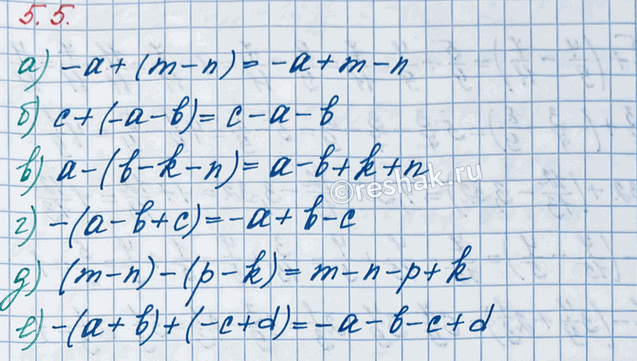 5.5.
а) -a + (m - n) = -a + m - n
б) c + (-a - b) = c - a - b
в) a - (b - k - n) = a - b + k + n
©reshak.ru
г) -(a - b + c) = -a + b - c
д) (m - n) - (p - k) = m - n - p + k
е) -(a + b) + (-c + d) = -a - b - c + d